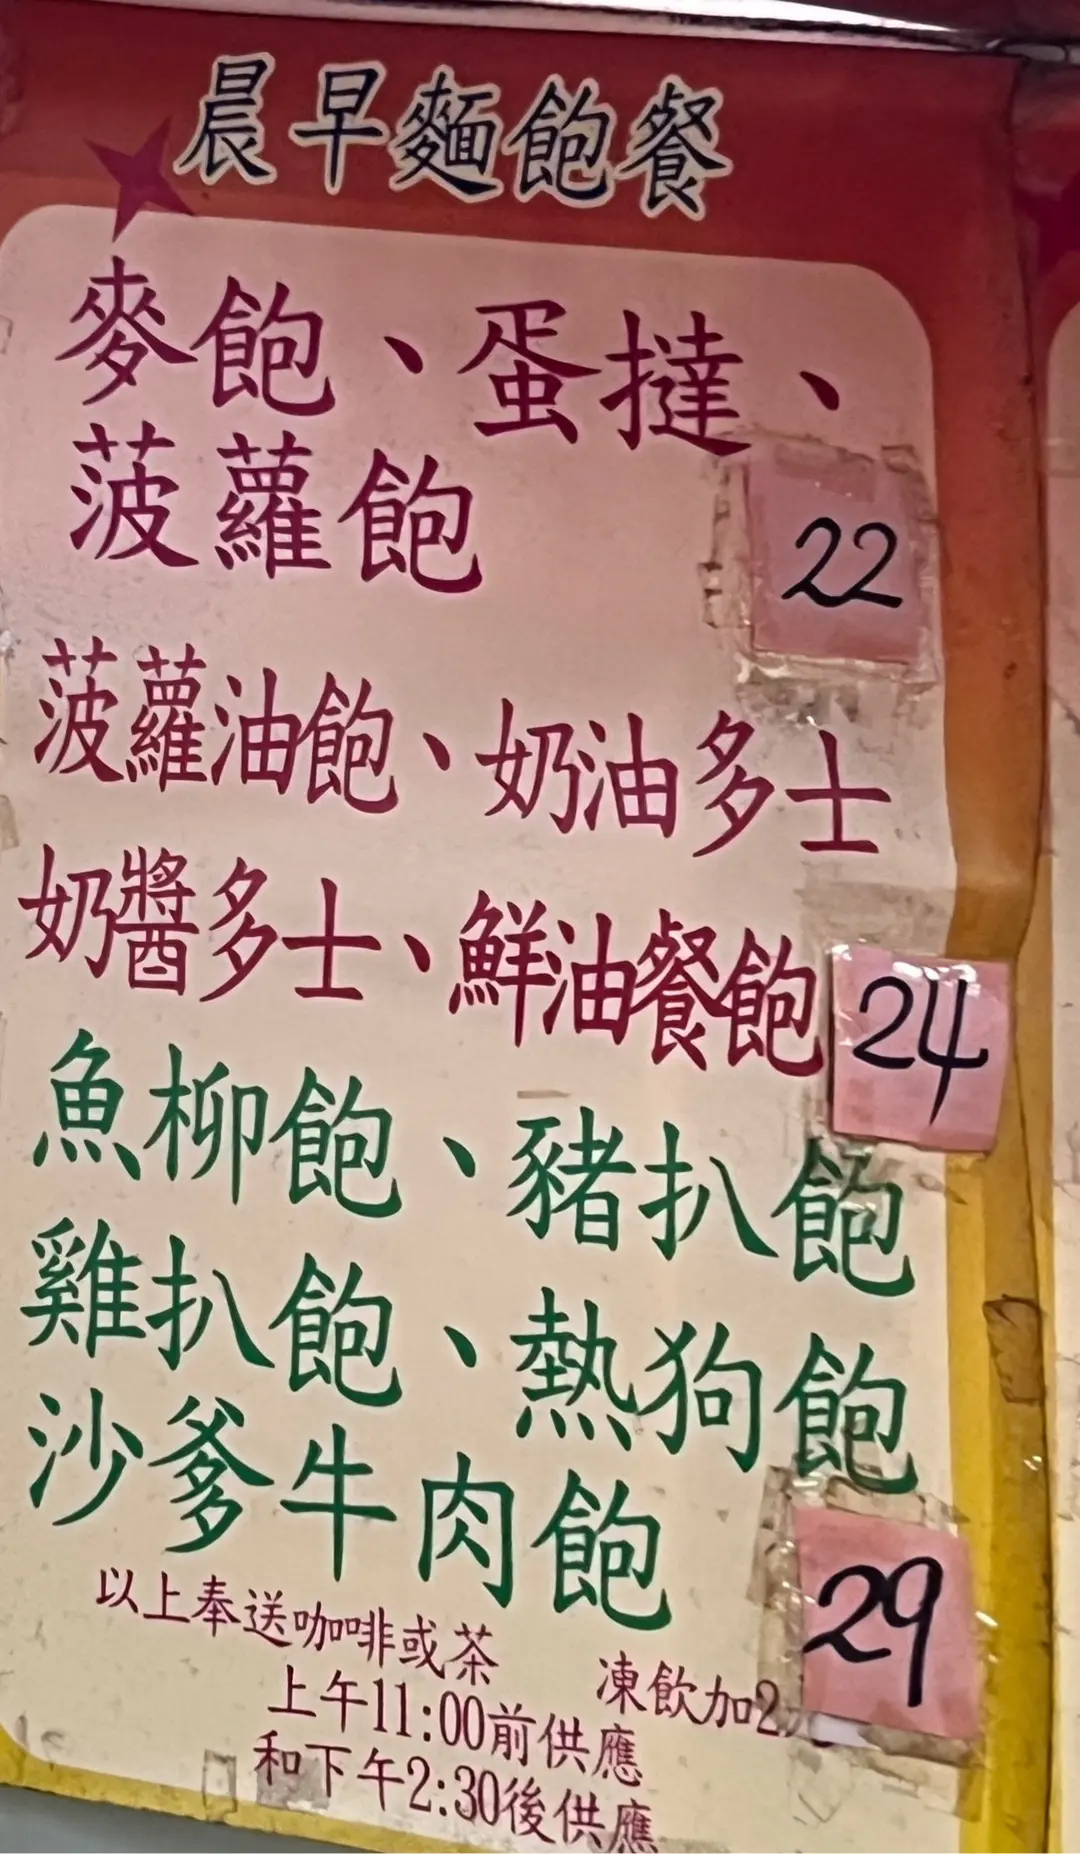 晨早麵飽餐
麥飽、蛋撻、
菠蘿飽
22
菠蘿油飽、奶油多士
奶醬多士、鮮油餐飽
24
魚柳飽、豬扒飽
雞扒飽、熱狗飽
沙爹牛肉飽
29
以上奉送咖啡或茶
凍飲加2元
上午11:00前供應
和下午2:30後供應